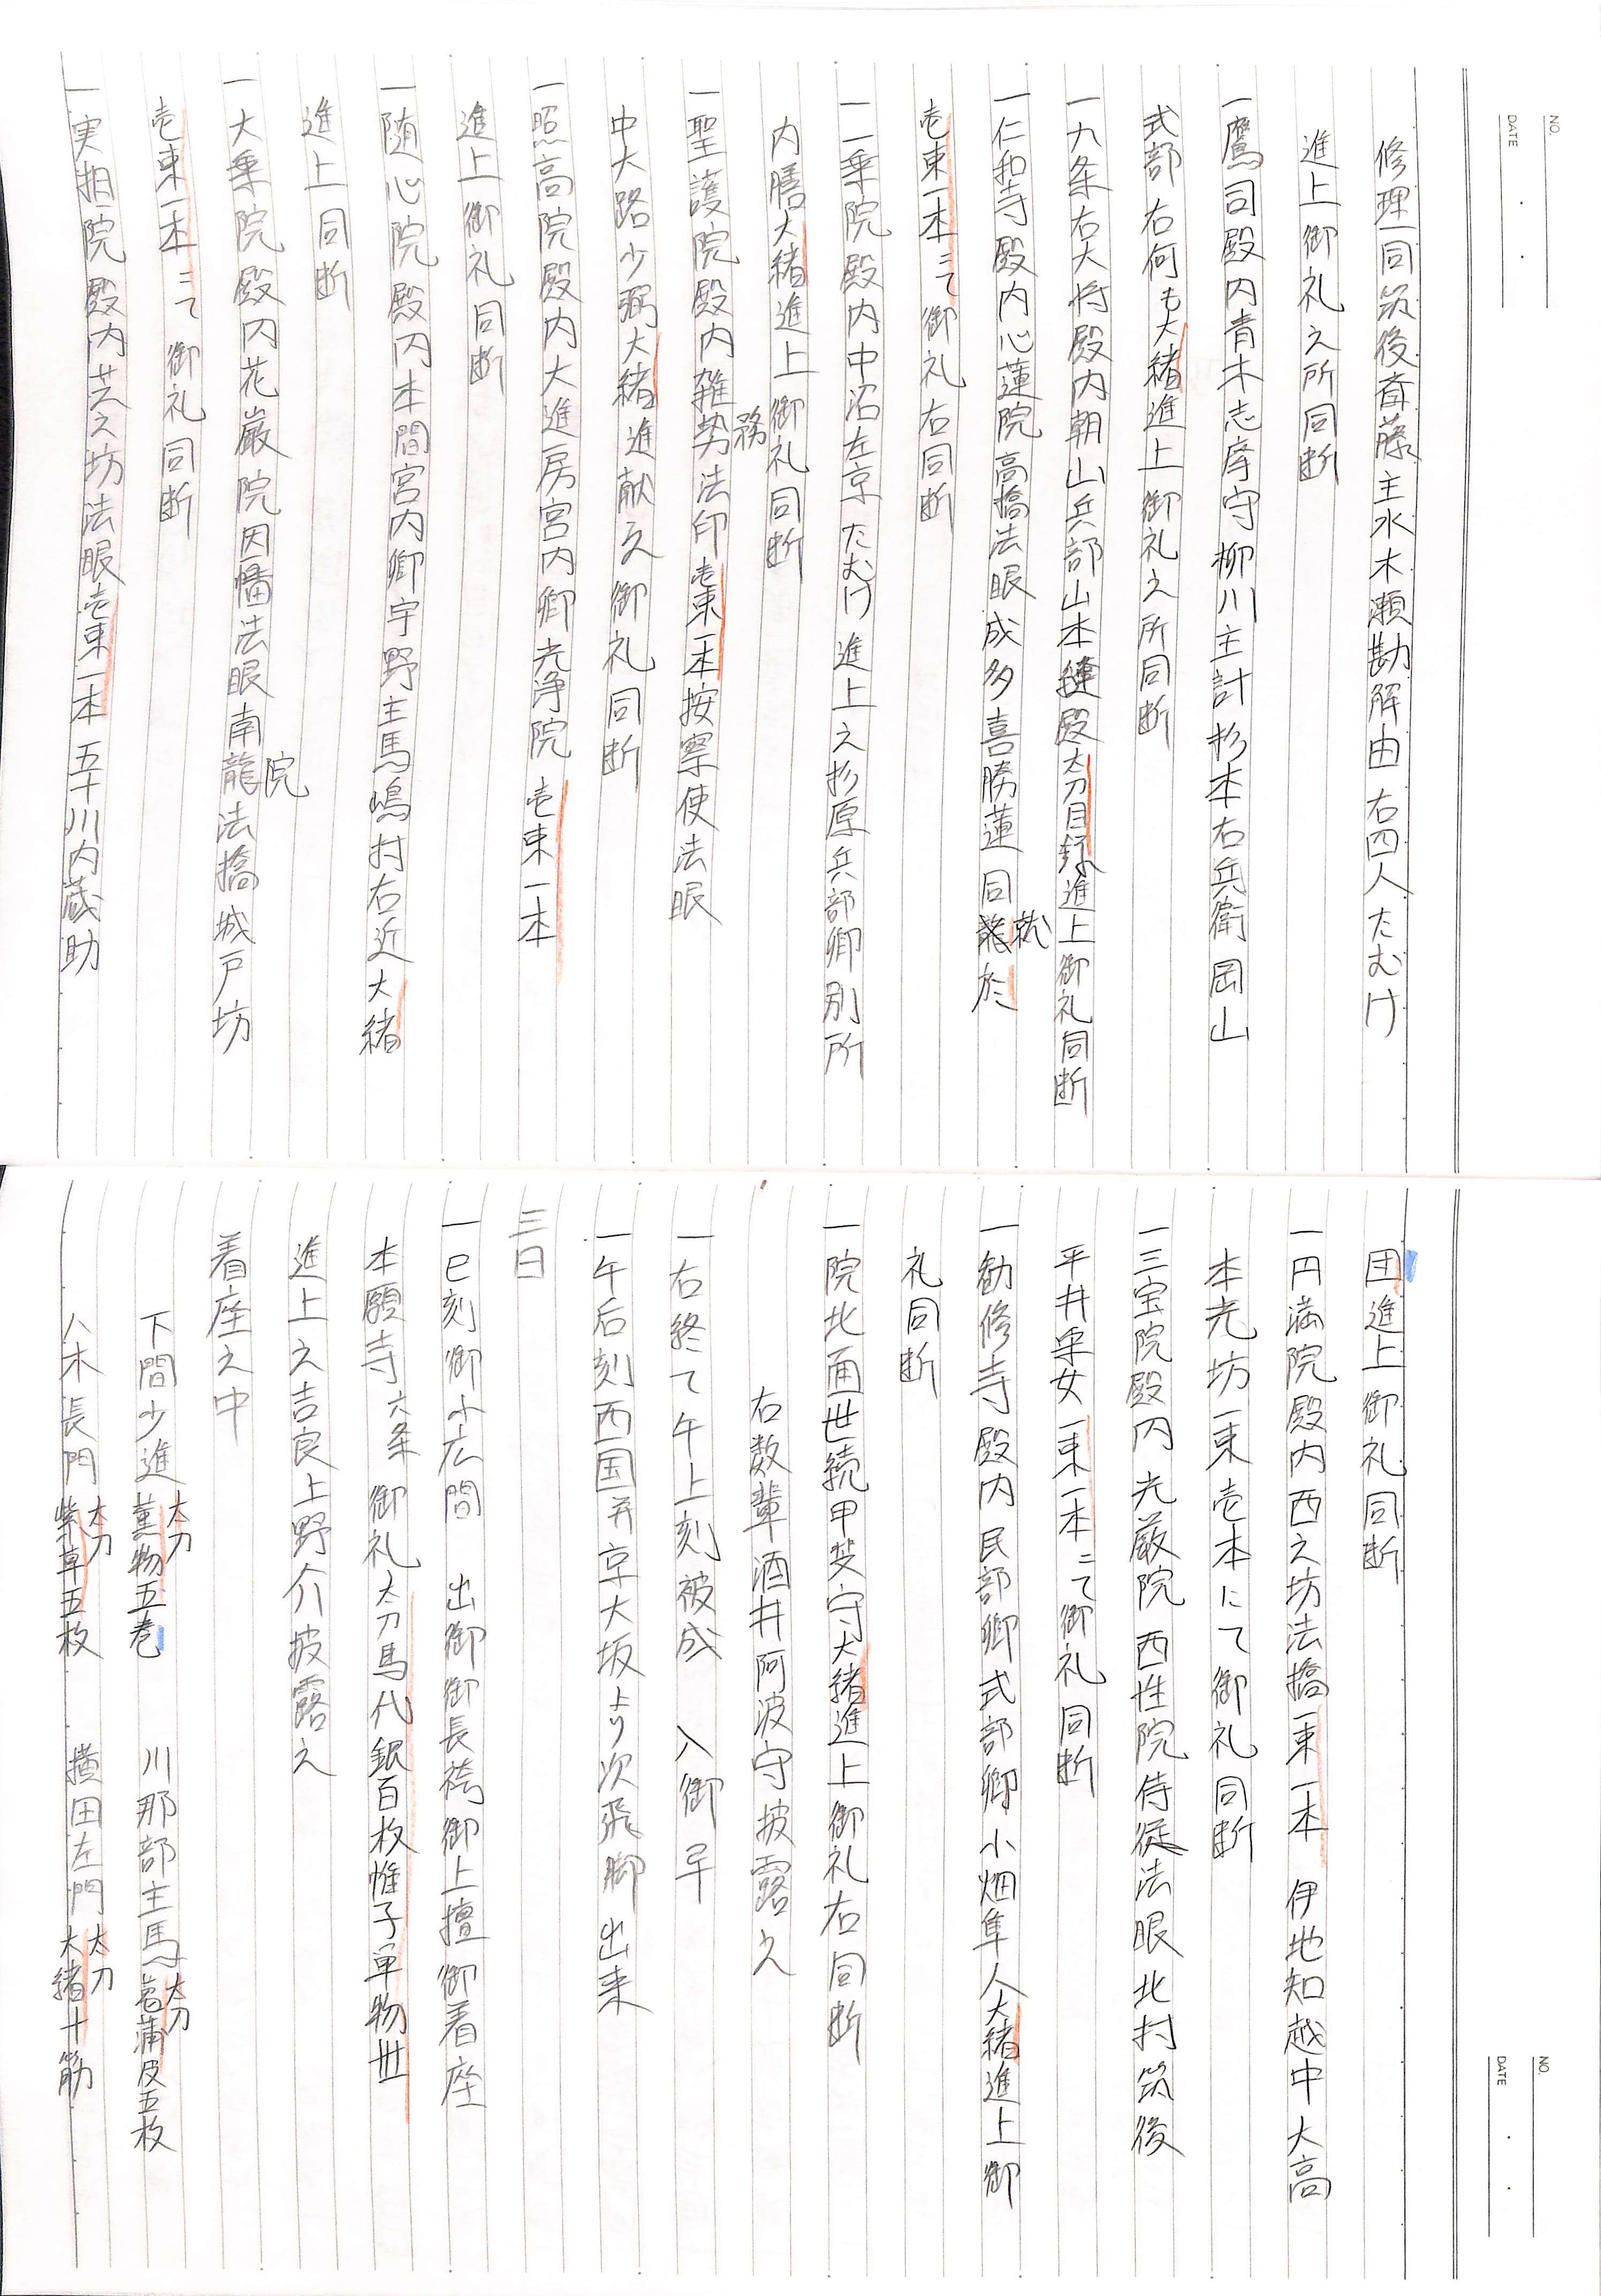 NO.
DATE
修理同筑後斉藤主水木瀬勘解由右四人たむけ
進上御礼之所同断
一鷹司殿内青木志摩守柳川主計杉本右兵衛岡山
式部右何も大緒進上御礼之所同断
一九条右大将殿内朝山兵部山本縫殿太刀目録進上御礼同断
一仁和寺殿内心蓮院高橋法眼成多喜勝蓮同
壱束一本ニて御礼右同断
一一乗院殿内中沼左京たむけ進上之杉原兵部卿別所
内膳大緒進上御礼同断
一聖護院殿内雑務法印壱束一本按察使法眼
中大路少弼大緒進献之御礼同断
一照高院殿内大進房宮内卿光浄院壱束一本
進上御礼同断
一随心院殿内本間宮内卿宇野主馬嶋村右近大緒
進上同断
一大乗院殿内花厳院因幡法眼南龍院法橋城戸坊
壱束一本ニて御礼同断
一実相院殿内芝之坊法眼壱束一本五十川内蔵助
NO.
DATE
団進上御礼同断
一円満院殿内西之坊法橋一束一本伊地知越中大高
本光坊一束壱本にて御礼同断
一三宝院殿内光厳院西性院侍従法眼北村筑後
平井采女一束一本ニて御礼同断
一勧修寺殿内民部卿式部卿小畑隼人大緒進上御
礼同断
一院北面世続甲斐守大緒進上御礼右同断
右数輩酒井阿波守披露之
一右終て午上刻被成入御早
一午后刻西国并京大坂より次飛脚出来
三日
一巳刻御小広間出御御長袴御上壇御着座
本願寺六条御礼太刀馬代銀百枚帷子単物卅
進上之吉良上野介披露之
着座之中
下間少進太刀薫物五巻 川那部主馬太刀菖蒲皮五枚
八木長門太刀紫草五枚 横田左門太刀大緒十筋